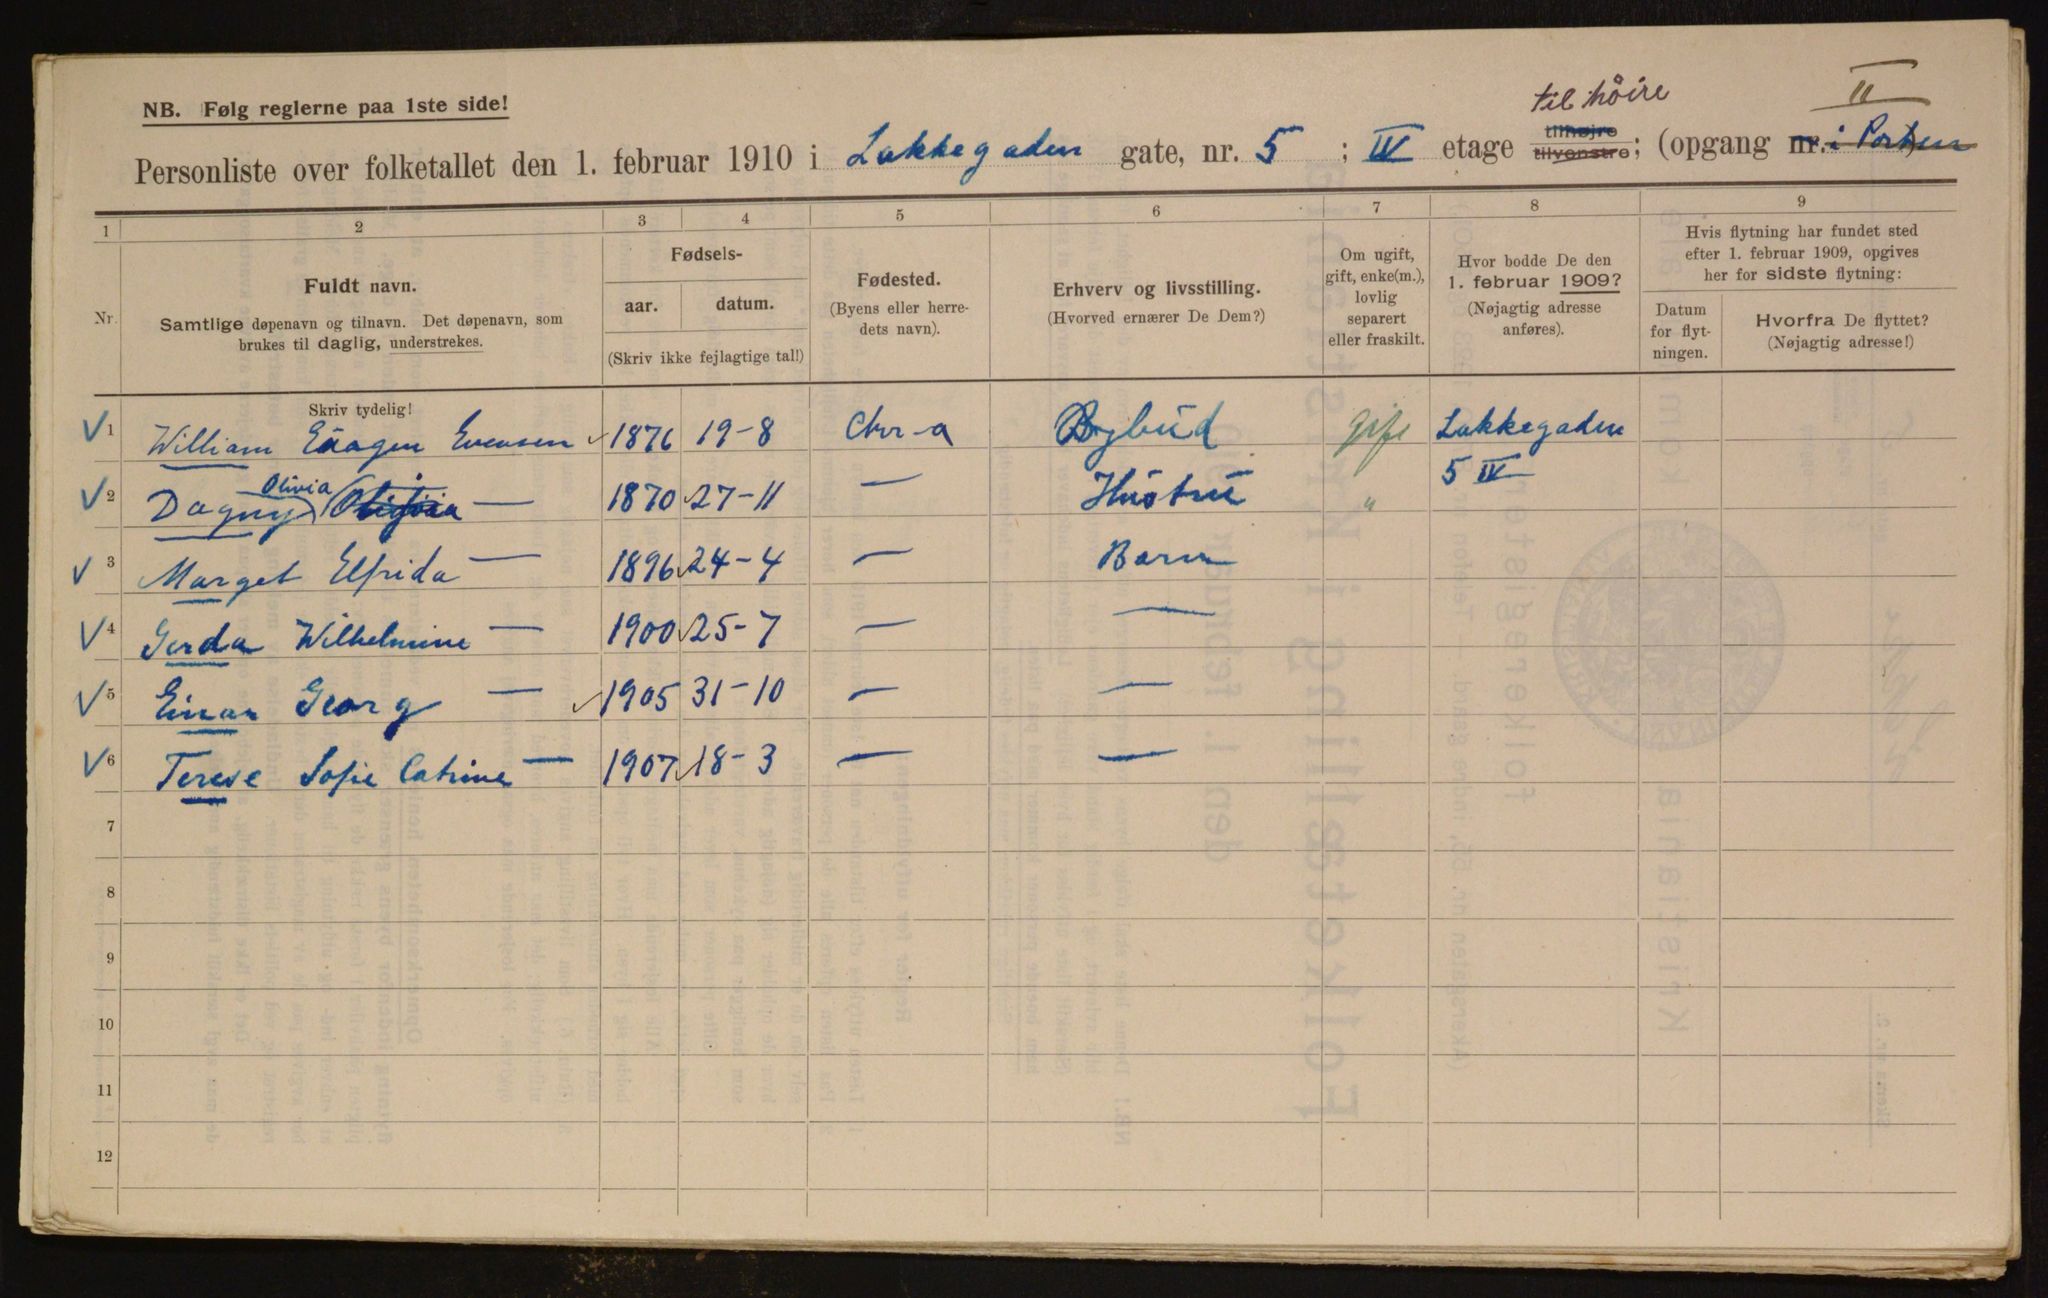 NB. Følg reglerne paa 1ste side!
til høire
II
Personliste over folketallet den 1. februar 1910 i Lakkegaden gate, nr. 5 ; IV etage tilhøjre tilvenstre; (opgang nr. i Porten
1 2 3 4 5 6 7 8 9
Nr.
Fuldt navn.
Samtlige døpenavn og tilnavn. Det døpenavn, som
brukes til daglig, understrekes.
Fødsels-
aar. datum.
(Skriv ikke fejlagtige tal!)
Fødested.
(Byens eller herre-
dets navn).
Erhverv og livsstilling.
(Hvorved ernærer De Dem?)
Om ugift,
gift, enke(m.),
lovlig
separert
eller fraskilt.
Hvor bodde De den
1. februar 1909?
(Nøjagtig adresse
anføres).
Hvis flytning har fundet sted
efter 1. februar 1909, opgives
her for sidste flytning:
Datum
for flyt-
ningen.
Hvorfra De flyttet?
(Nøjagtig adresse!)
Skriv tydelig!
1 William Evensen 1876 19-8 Chr-a Bybud gift Lakkegaden
5 IV
2 Dagny Olivia — 1870 27-11 — Hustru "
3 Marget Elfrida — 1896 24-4 — Barn
4 Gerda Wilhelmine — 1900 25-7 — —
5 Einar Georg — 1905 31-10 — —
6 Terese Sofie Catrine — 1907 18-3 — —
7
8
9
10
11
12